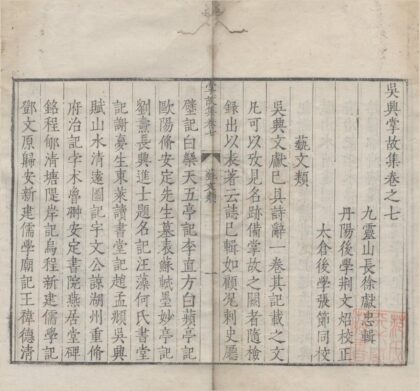 吳興掌故集卷之七
九靈山長徐獻忠輯
丹陽後學荊文炤校正
太倉後學張節同校
藝文類
吳興文獻已具詩辭一卷其記載之文
凡可以攷見名跡備掌故之闕者隨檢
錄出以表著云誌已輯如顧况刺史廳
掌故集卷七
藝文類
一
壁記白蘋天五亭記李直方白蘋亭記
歐陽脩安定先生墓表蘇軾墨妙亭記
劉燾長興進士題名記汪藻何氏書堂
記謝蕘生東萊讀書堂記趙孟頫吳興
賦山水清遠圖記宇文公諒湖州重脩
府治記孛术魯翀安定書院燕居堂碑
銘程郇清塘隄岸記烏程新建儒學記
鄧文原歸安新建儒學廟記王禕德清